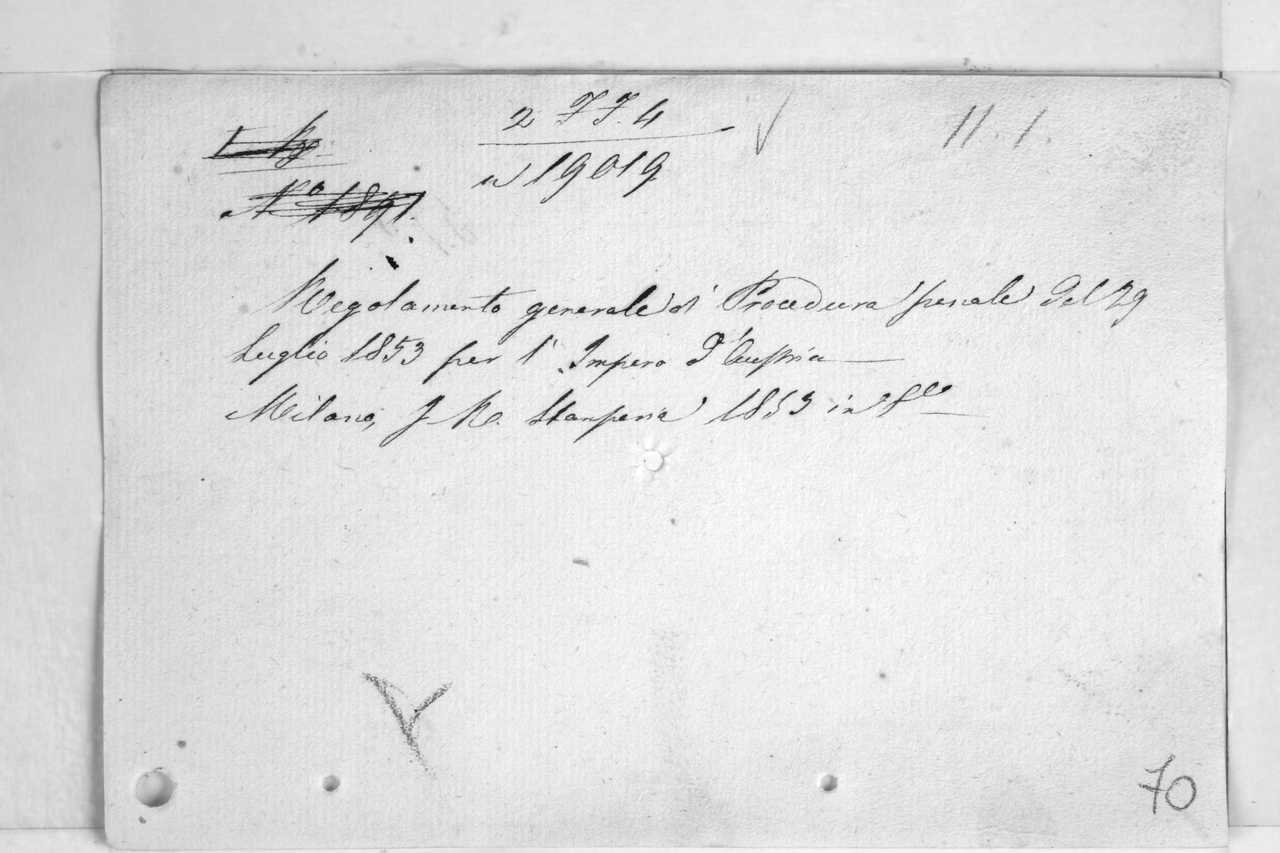 2 FF. 4
11. 1.
N° 1891.
n 19019
Regolamento generale di Procedura penale del 29
Luglio 1853 per l' Impero d'Austria
Milano, J. R. Stamperia 1853 in 8°
70